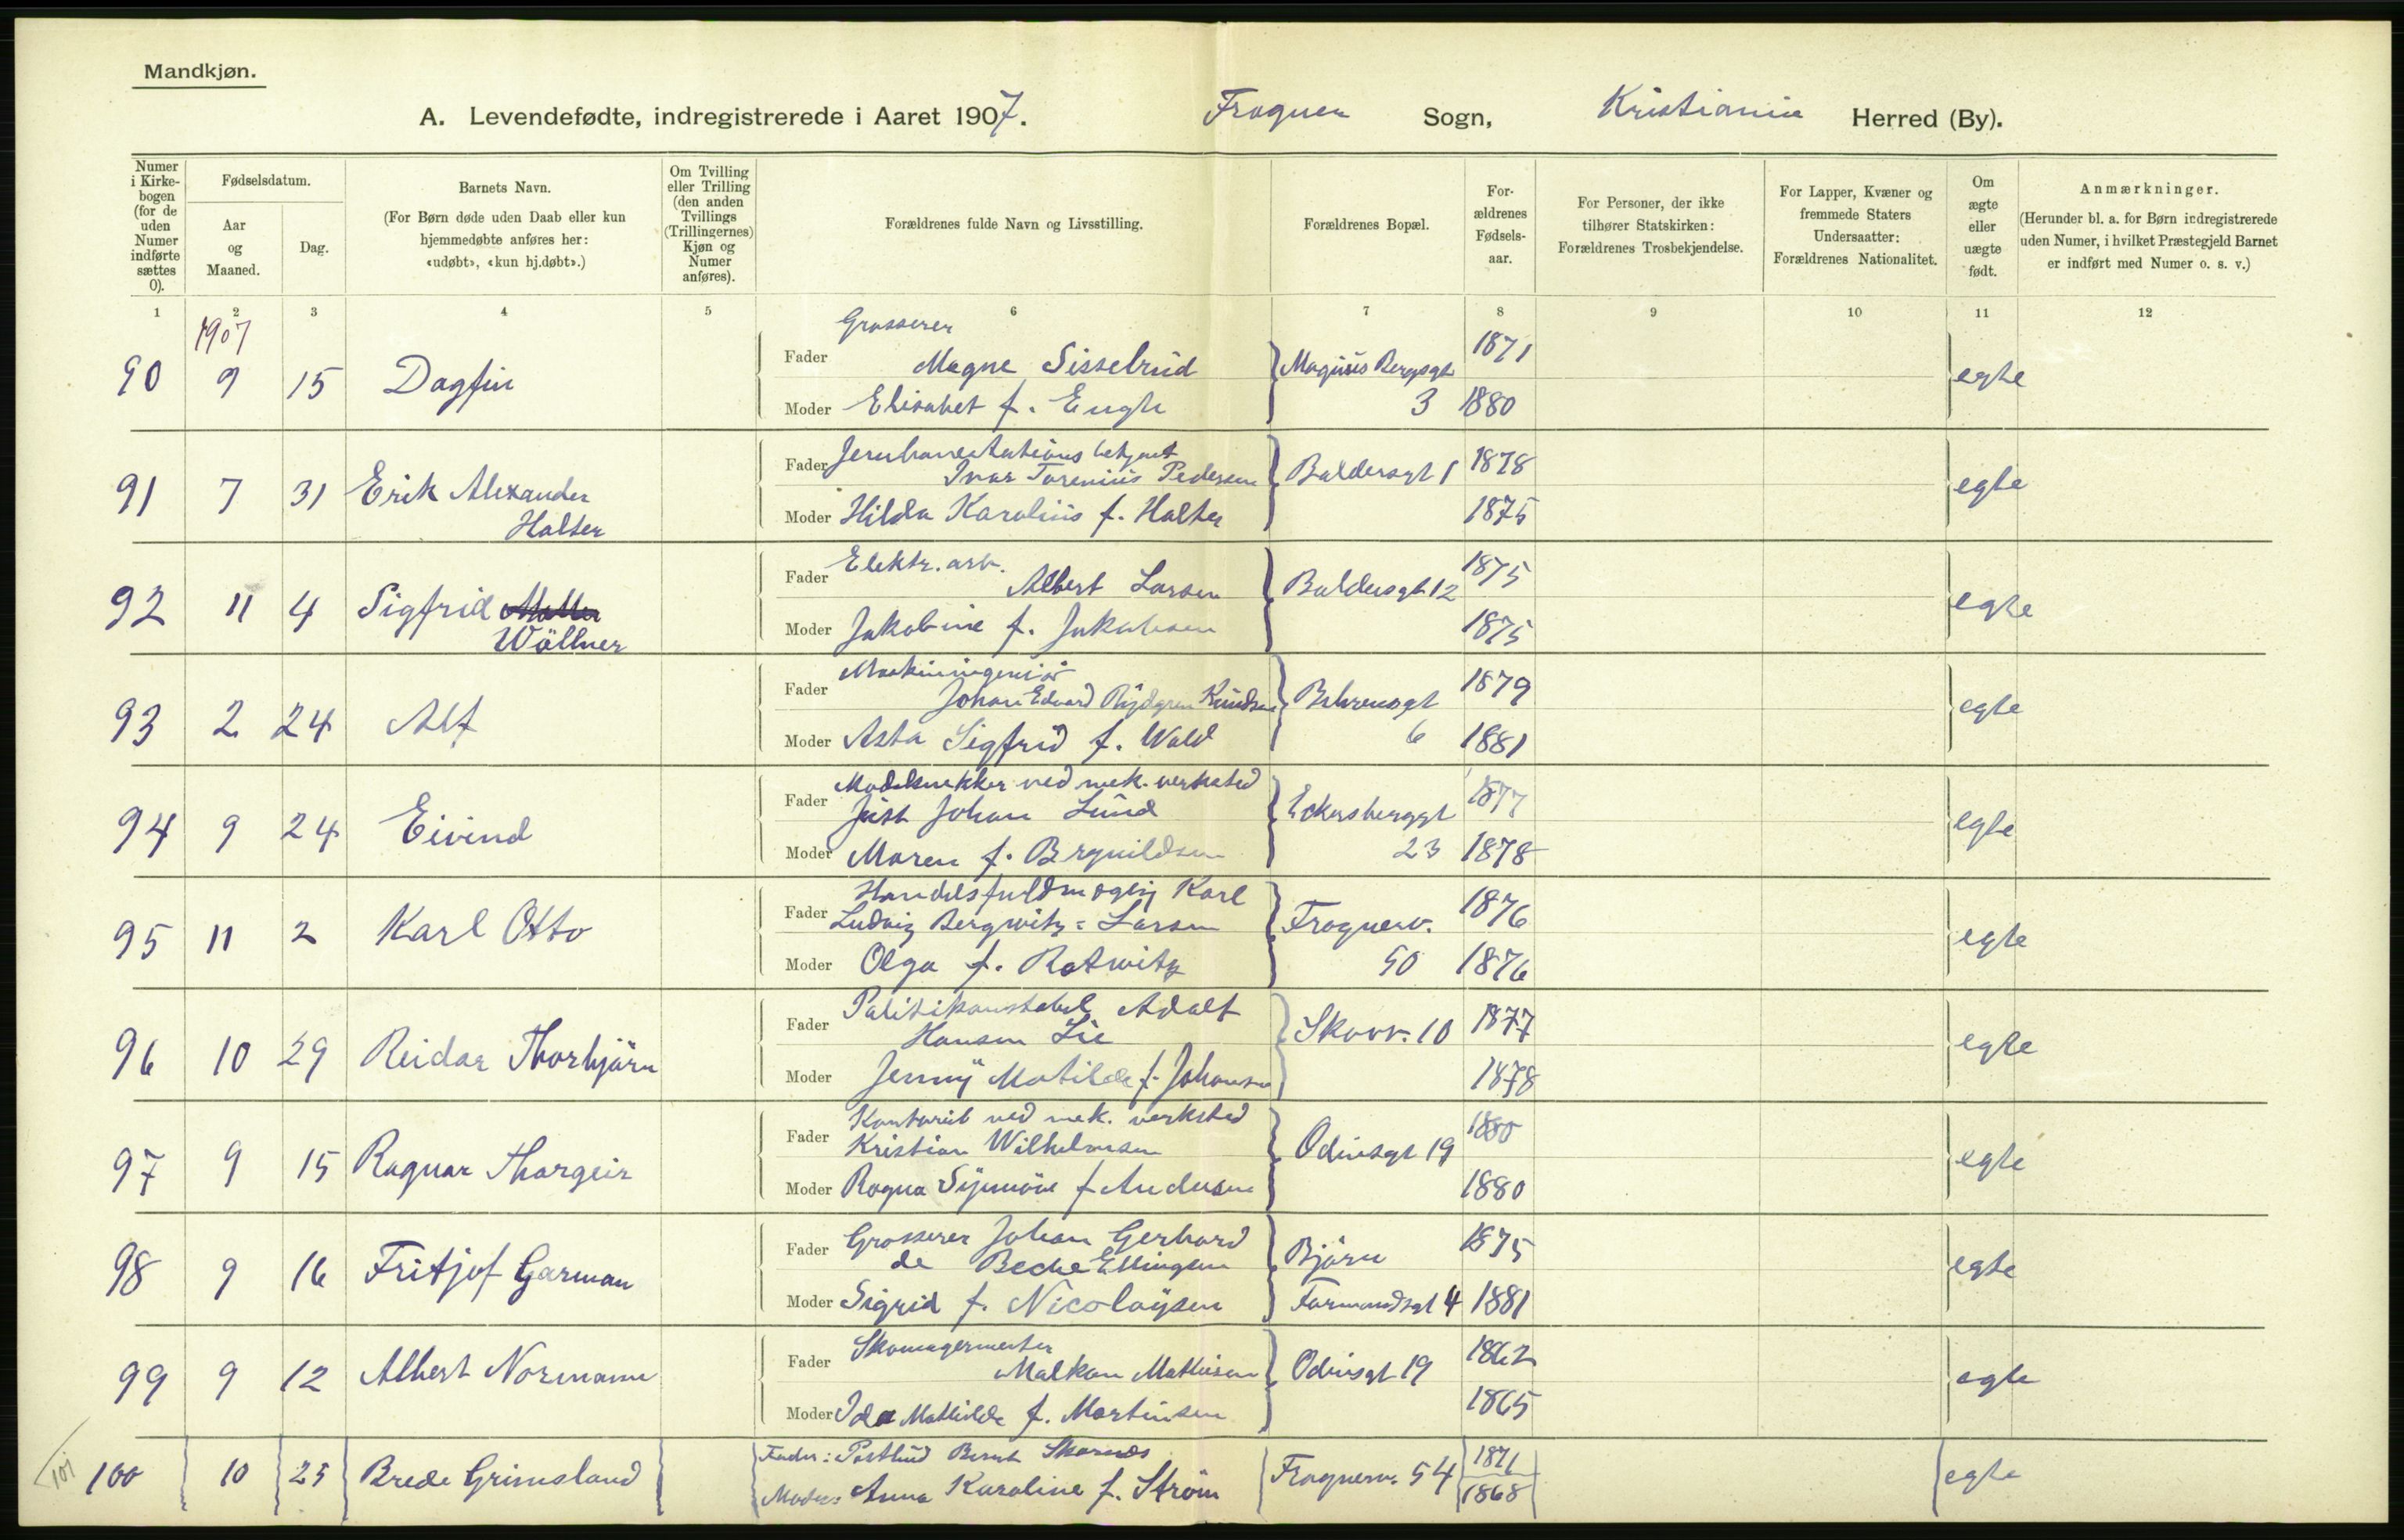 Mandkjøn.
A. Levendefødte, indregistrerede i Aaret 1907. Frogner Sogn, Kristiania Herred (By).
Numer i Kirke-bogen (for de uden Numer indførte sættes 0).
Fødselsdatum.
Aar og Maaned.
Dag.
Barnets Navn.
(For Børn døde uden Daab eller kun hjemmedøbte anføres her: «udøbt», «kun hj.døbt».)
Om Tvilling eller Trilling (den anden Tvillings (Trillingernes) Kjøn og Numer anføres).
Forældrenes fulde Navn og Livsstilling.
Forældrenes Bopæl.
For-ældrenes Fødsels-aar.
For Personer, der ikke tilhører Statskirken: Forældrenes Trosbekjendelse.
For Lapper, Kvæner og fremmede Staters Undersaatter: Forældrenes Nationalitet.
Om ægte eller uægte født.
Anmærkninger.
(Herunder bl. a. for Børn indregistrerede uden Numer, i hvilket Præstegjeld Barnet er indført med Numer o. s. v.)
1 2 3 4 5 6 7 8 9 10 11 12
1907
Grosserer
90 9 15 Dagfin Fader Magne Sisselrud Magnus Bergsgt 1871 egte
Moder Elisabet f. Engh 3 1880
Fader Jernbanestations betjent
91 7 31 Erik Alexander Ivar Torenius Pedersen Baldersgt 1 1878 egte
Halter Moder Hilda Karolius f. Halter 1875
Fader Elektr. arb.
92 11 4 Sigfrid Albert Larsen Baldersgt 12 1875 egte
Wöllner Moder Jakobine f. Jakobsen 1875
Fader Maskiningeniör
93 2 24 Alf Johan Edvard Rydgren Knudsen Behrensgt 1879 egte
Moder Asta Sigfrid f. Wold 6 1881
Modelsnekker ved mek. verksted
94 9 24 Eivind Fader Just Johan Lund Eckersberggt 1877 egte
Moder Maren f. Brynildsen 23 1878
Handelsfuldmægtig Karl
95 11 2 Karl Otto Fader Ludvig Bergwitz-Larsen Frognerv. 1876 egte
Moder Olga f. Rotwitz 50 1876
Politikonstabel Adolf
96 10 29 Reidar Thorbjörn Fader Hansen Lie Skovv. 10 1877 egte
Moder Jenny Matilde f. Johansen 1878
Kontorist ved mek. verksted
97 9 15 Ragnar Thorgeir Fader Kristian Wilhelmsen Odinsgt 19 1880 egte
Moder Ragna Synnöve f Andersen 1880
Grosserer Johan Gerhard
98 9 16 Fritjof Garman Fader de Beche Ellingsen Bjørn 1875 egte
Moder Sigrid f. Nicolaysen Farmandsgt 4 1881
Skomagermester
99 9 12 Albert Normann Fader Malkon Mathisen Odinsgt 19 1862 egte
Moder Ida Mathilde f. Martinsen 1865
Fader: Postbud Bernt Skarnes 1871
101 100 10 23 Brede Grimsland Frognerv. 54 egte
Moder: Anna Karoline f. Ström 1868